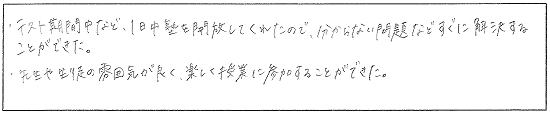 ・テスト期間中など、1日中塾を開放してくれたので、分からない問題などすぐに解決する
ことができた。
・先生や生徒の雰囲気が良く、楽しく授業に参加することができた。